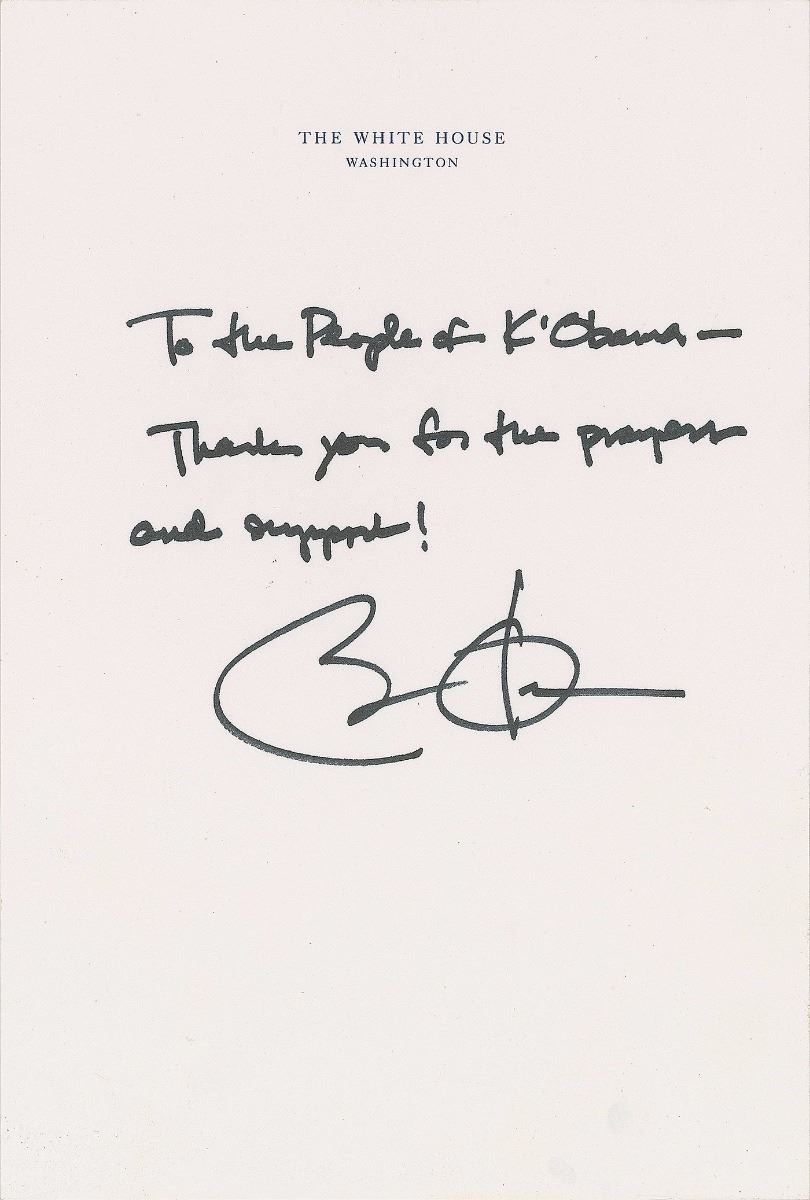 THE WHITE HOUSE
WASHINGTON
To the People of K'Obama —
Thanks you for the prayers
and support!